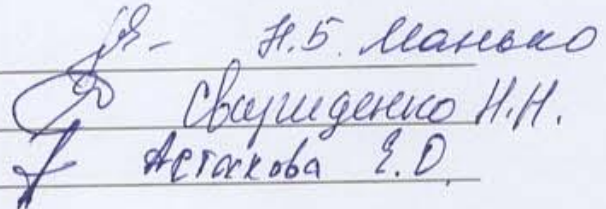 Н.Б. Манько
Свириденко Н.Н.
Астахова Е.О.